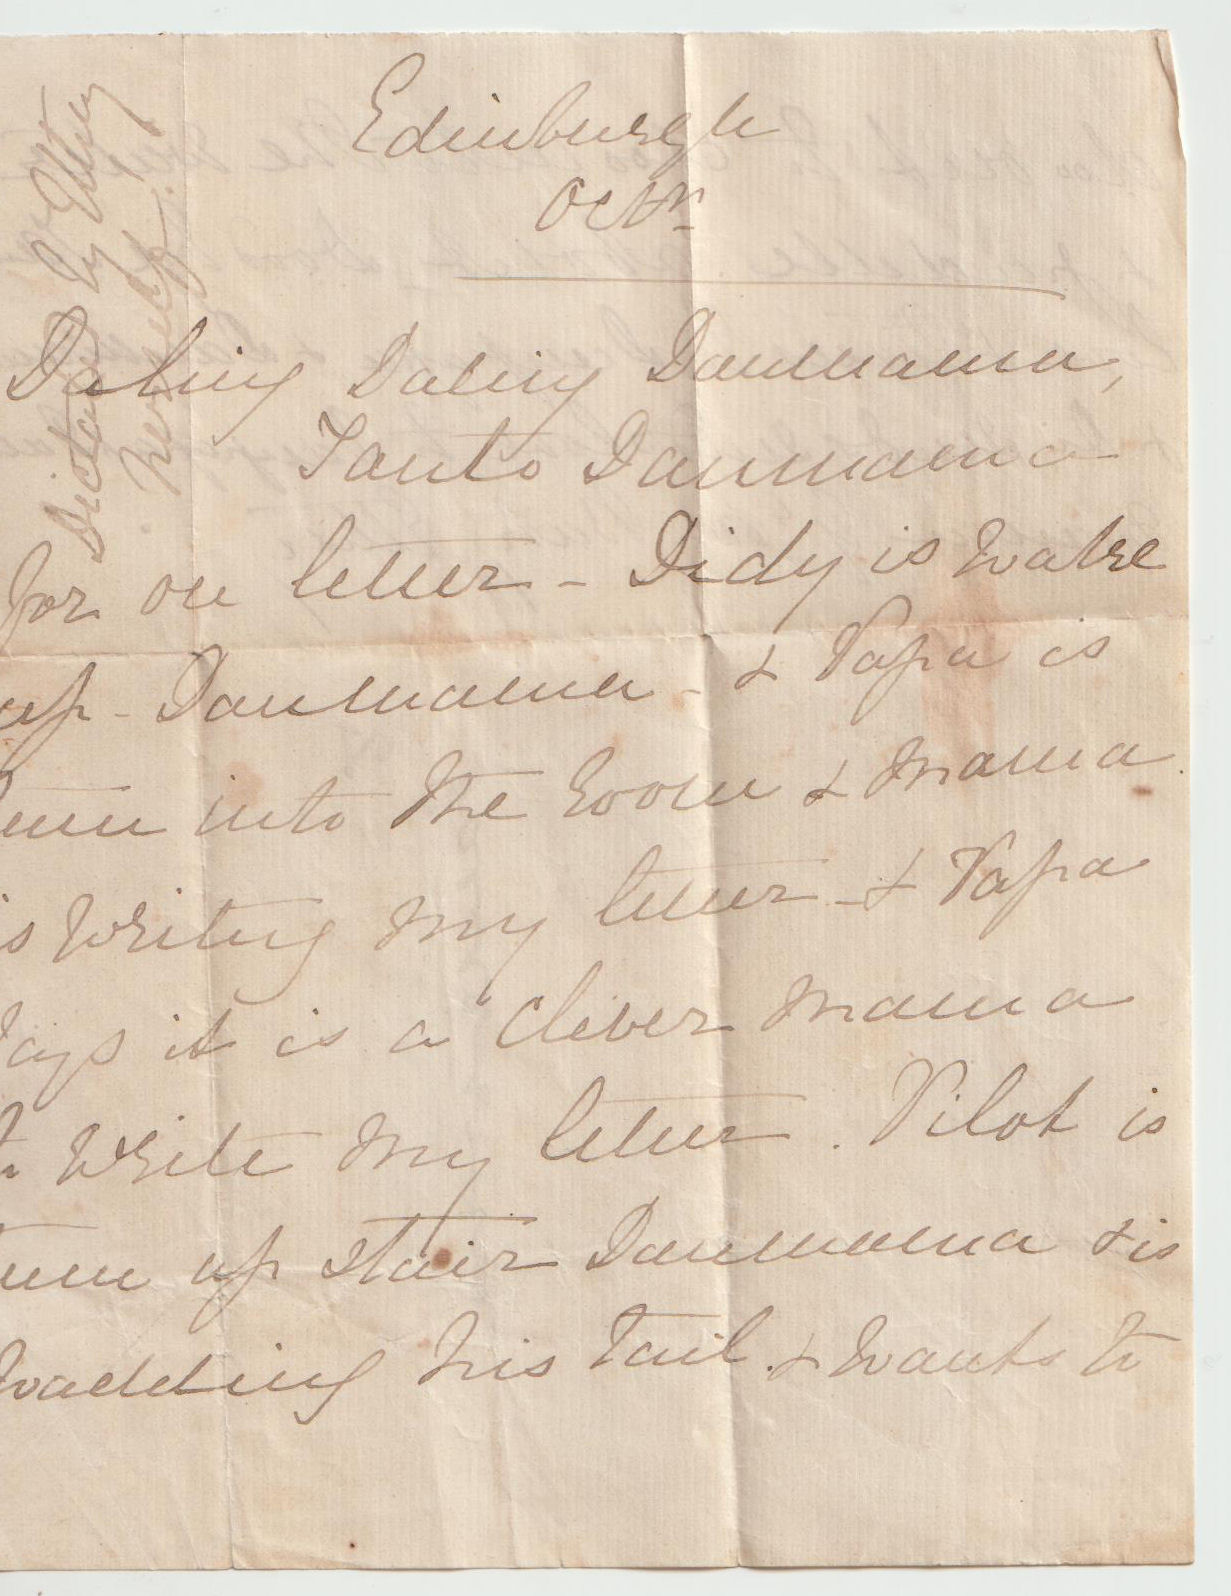 Edinburgh
Octr
Daling Daling Danmama,
Tanto Danmama
for ou letter - Didy is wake
up - Danmama - & Papa is
tum into the room & Mama
is writing my letter - & Papa
says it is a clever Mama
to write my letter. Pilot is
tum up stair Danmama & is
wadding his tail. & wants to
Dictated by
herself!